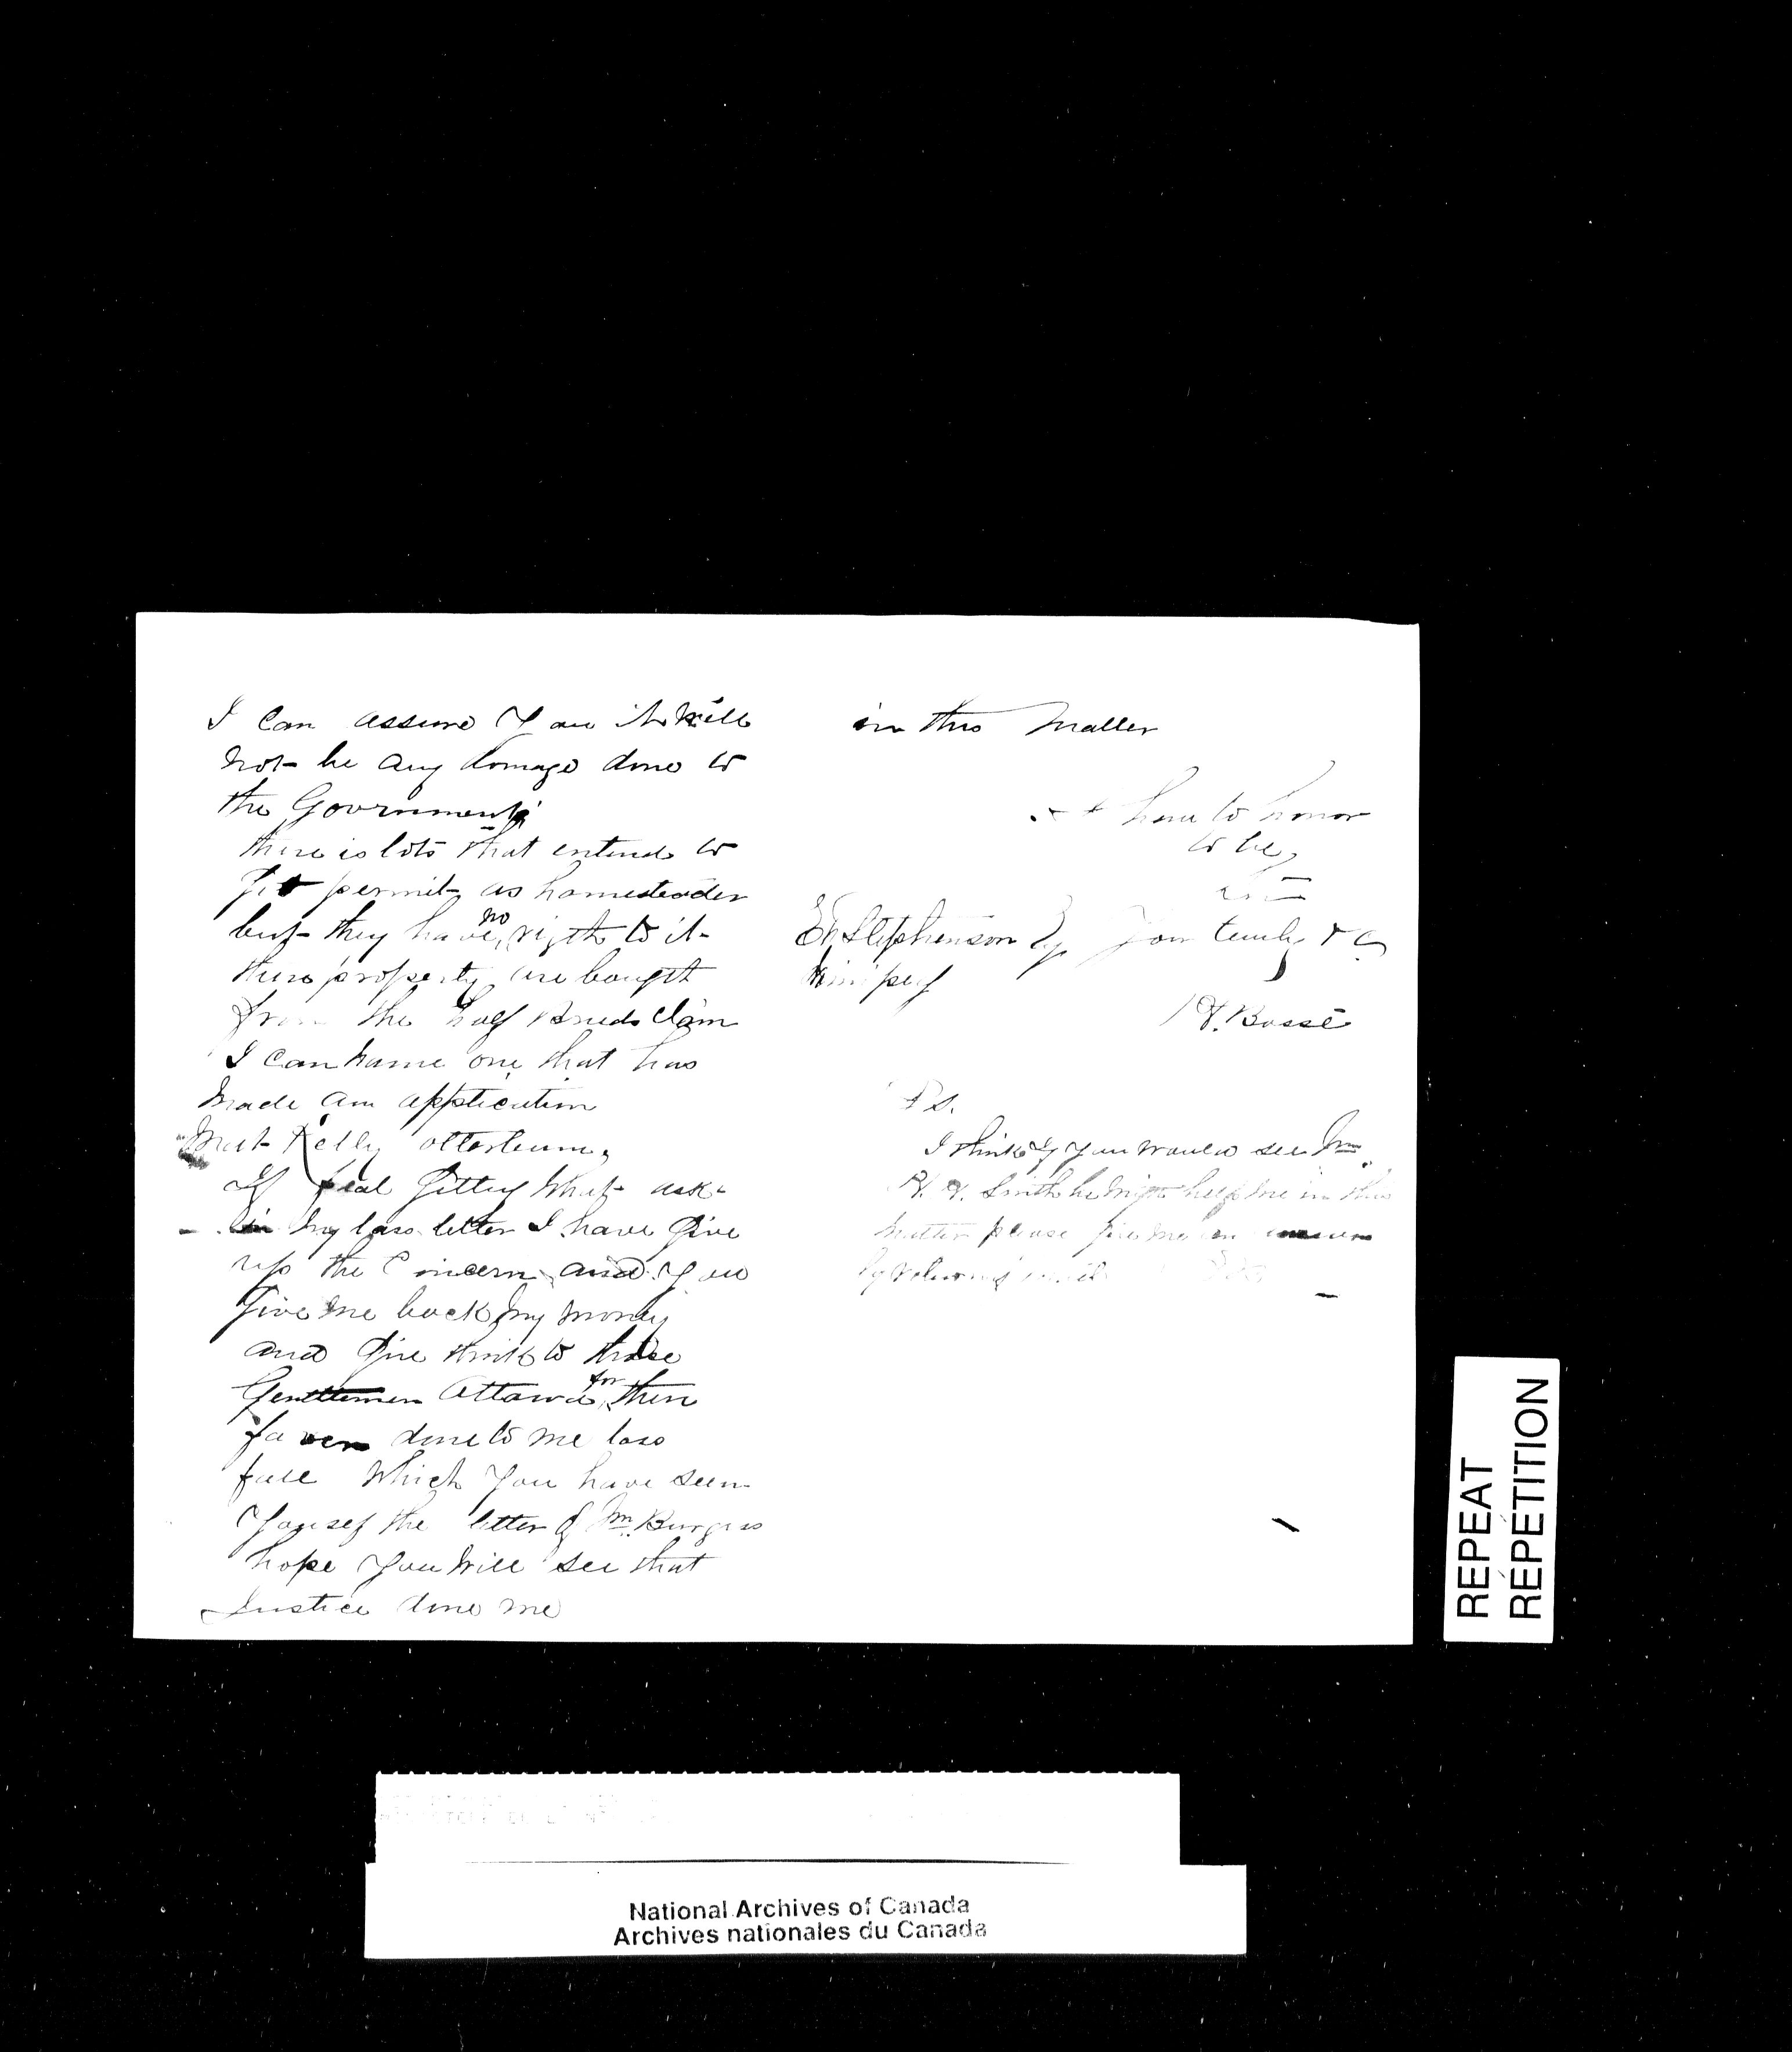 I Can assure You it will
not be any domage done to
the Government
there is lots that entend to
Git permit as homesteader
but they have no rigth to it
there property are bougth
from the half Breeds Claim
I can name one that has
made am application
Mat Kelly otterburne,
If feal Gitting what ask
in my lass letter I have Give
up the Concern and You
Give me back my money
and Give think to those
Gentlemen Attawa for there
faver done to me lass
fall Which You have seen
Yourself the letter of Mr. Burgess
hope You Will see that
Justice done me
in this Matter
have to honor
to be,
Stephenson Your truly
Winipeg
H. Bossé
P.S.
I think if you would see Mr.
H. H. Smith he might help me in this
matter please give me an
by returning mail
REPEAT
RÉPÉTITION
National Archives of Canada
Archives nationales du Canada